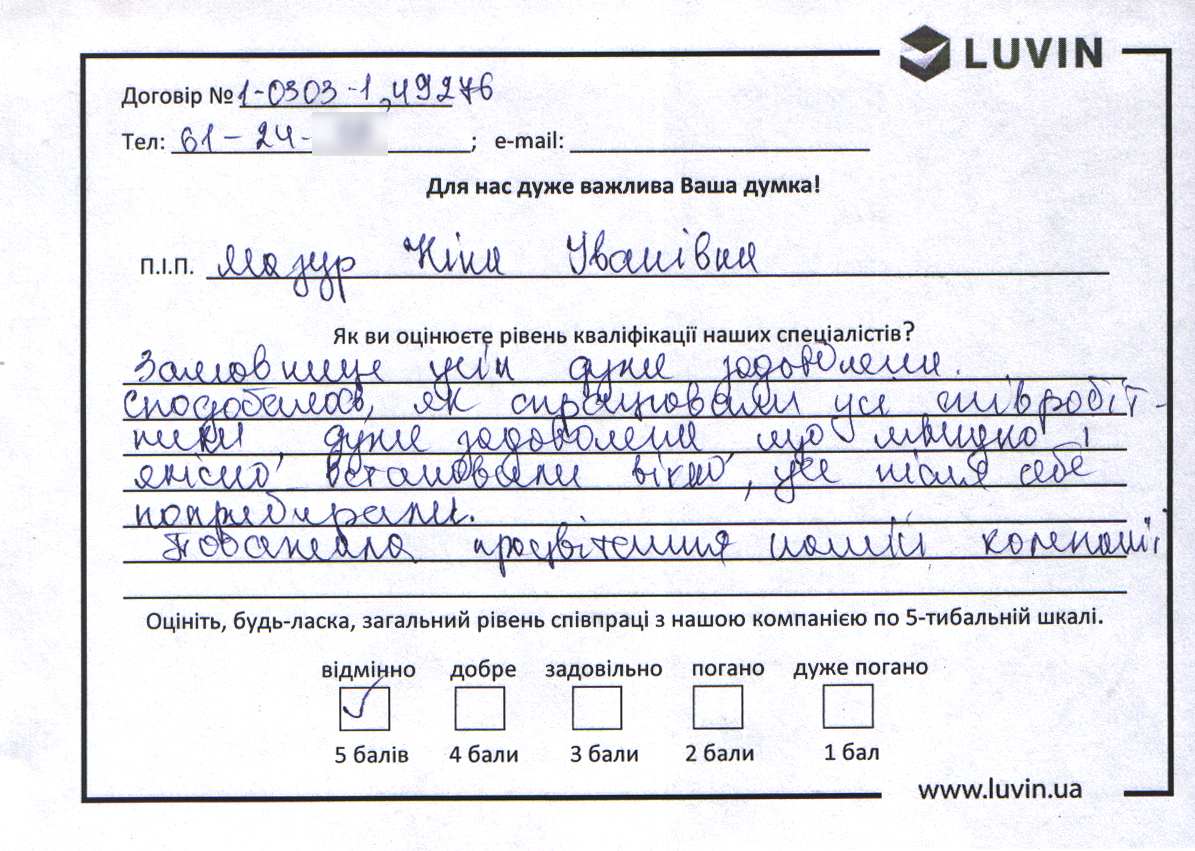 LUVIN
Договір № 1-0303-1, 49276
Тел: 61-24- ; e-mail:
Для нас дуже важлива Ваша думка!
П.І.П. Мазур Ніна Іванівна
Як ви оцінюєте рівень кваліфікації наших спеціалістів?
усім дуже задоволені.
сподобалось, як спрацювали усі співробіт-
ники, дуже задоволені що швидко і
якісно встановили вікно, усе після себе
поприбирали.
Побажала процвітання нашій компанії
Оцініть, будь-ласка, загальний рівень співпраці з нашою компанією по 5-тибальній шкалі.
відмінно добре задовільно погано дуже погано
5 балів 4 бали 3 бали 2 бали 1 бал
www.luvin.ua